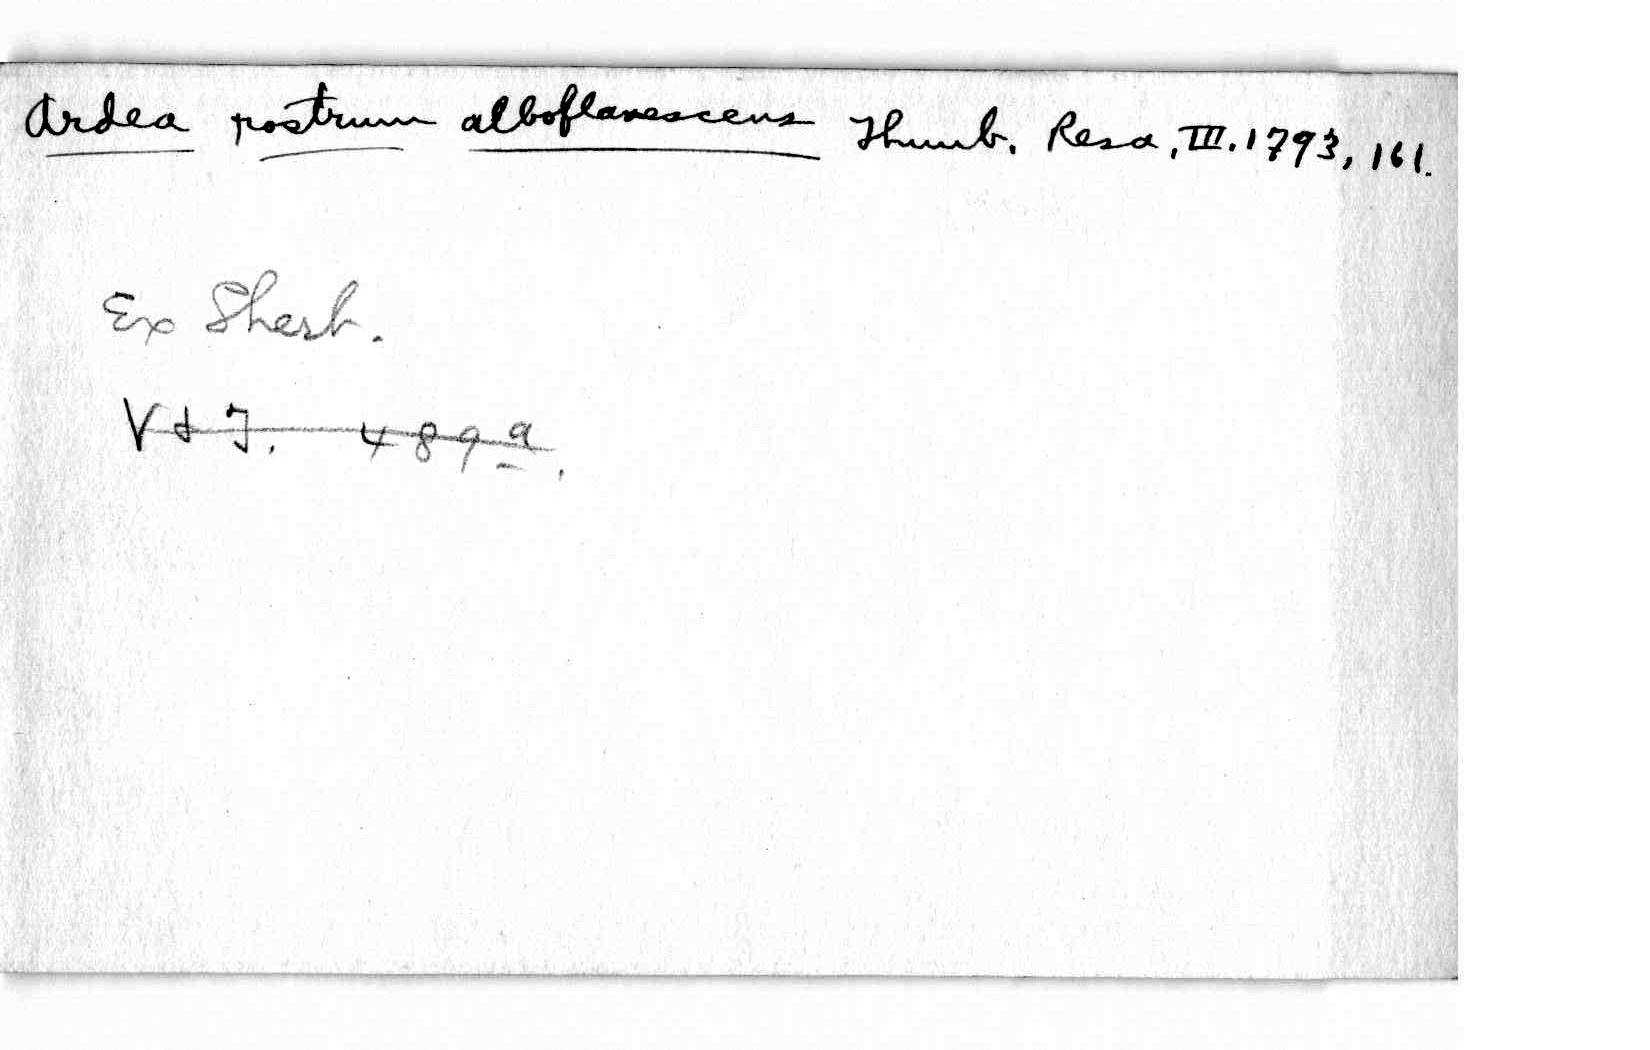 Ardea rostrum alboflavescens Thunb. Resa, III. 1793, 161.
Ex Sherb.
V & J. 489a.